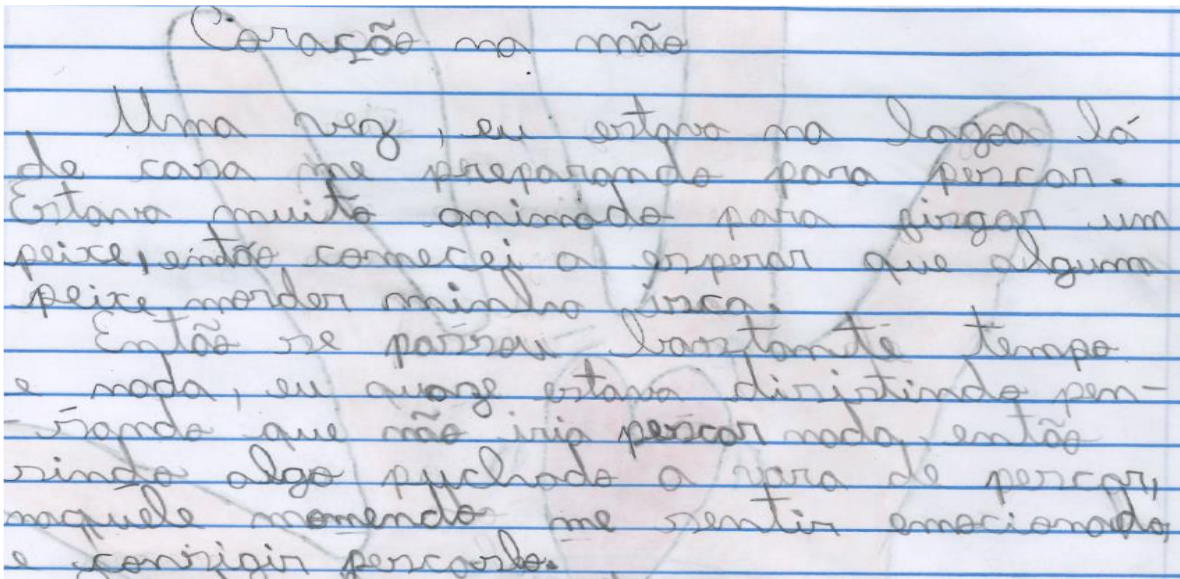 Coração na mão
Uma vez, eu estava na lagoa lá
de casa me preparando para pescar.
Estava muito animado para fisgar um
peixe, então comecei a esperar que algum
peixe morder minha isca.
Então se passou bastante tempo
e nada, eu quaze estava disistindo pen-
-sando que não iria pescar nada, então
sindo algo puchado a vara de pescar,
naquele momendo me sentir emocionado,
e consigir pescarlo.